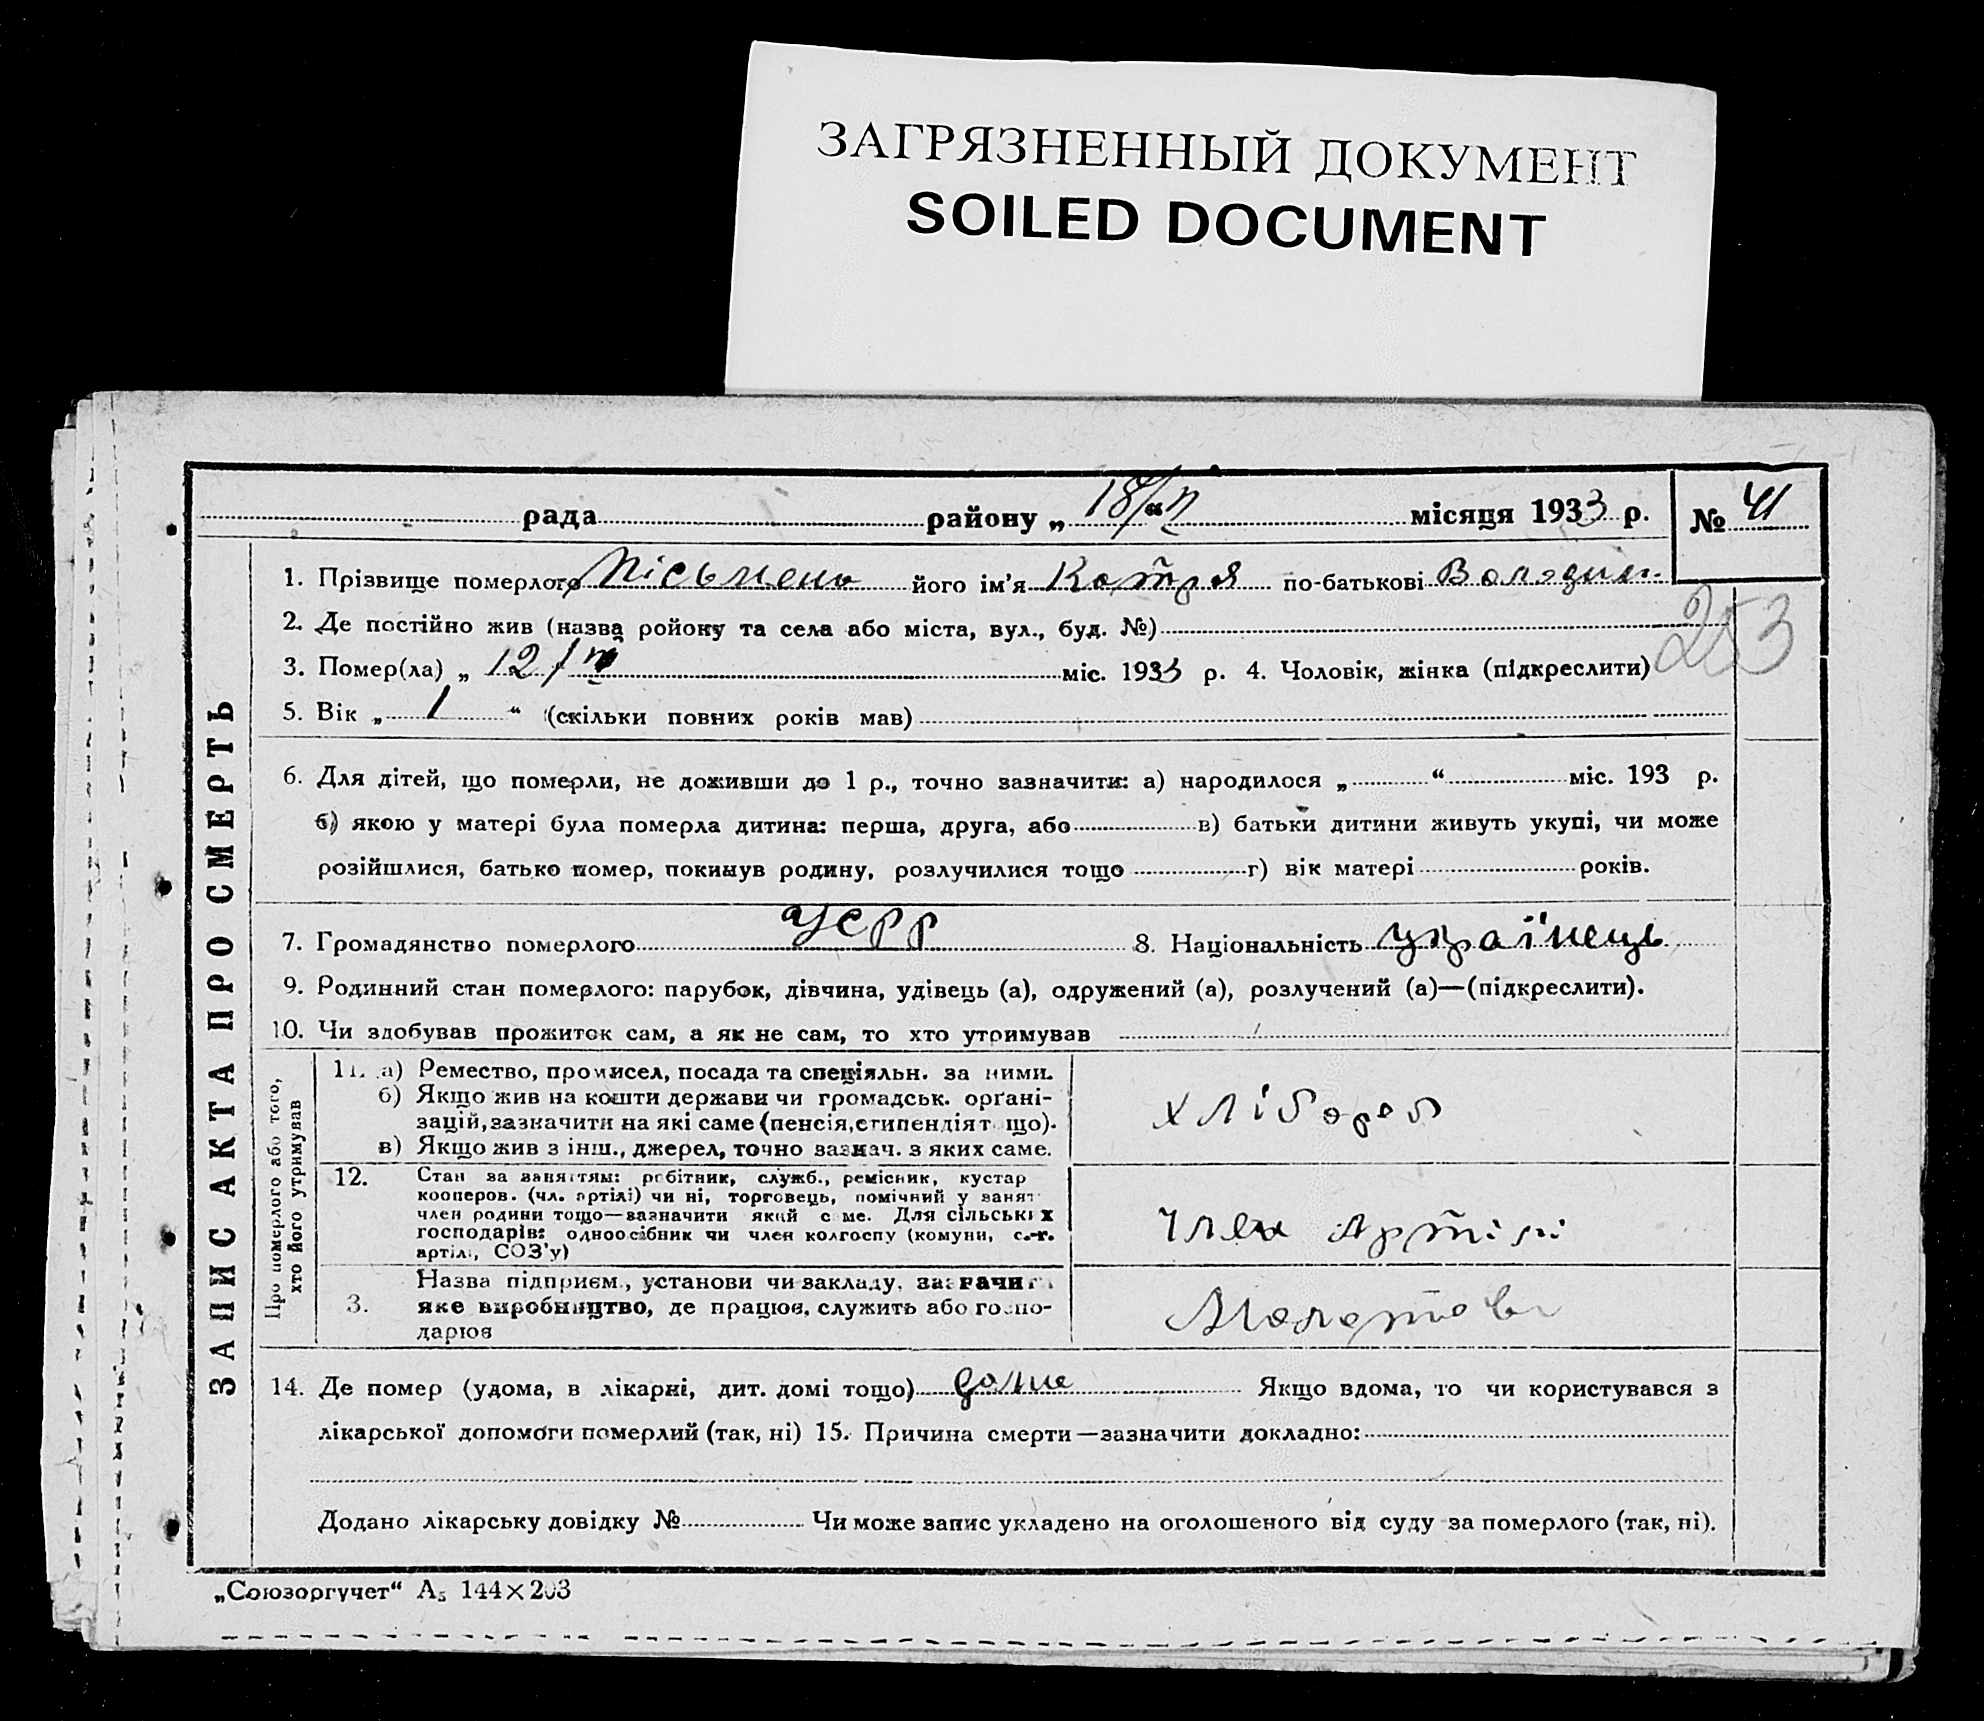 ЗАГРЯЗНЕННЫЙ ДОКУМЕНТ
SOILED DOCUMENT
рада району „ 18/ “ місяця 1933 р. № 41
1. Прізвище померлого Пісьмень його ім'я Катря по-батькові Володим.
253
2. Де постійно жив (назва ройону та села або міста, вул., буд. №)
3. Помер(ла) „ 12/ міс. 1933 р. 4. Чоловік, жінка (підкреслити)
5. Вік „ 1 “ (скільки повних років мав)
6. Для дітей, що померли, не доживши до 1 р., точно зазначити: а) народилося „ “ міс. 193 р.
б) якою у матері була померла дитина: перша, друга, або в) батьки дитини живуть укупі, чи може
розійшлися, батько помер, покинув родину, розлучилися тощо г) вік матері років.
7. Громадянство померлого УСРР 8. Національність українець
9. Родинний стан померлого: парубок, дівчина, удівець (а), одружений (а), розлучений (а)—(підкреслити).
10. Чи здобував прожиток сам, а як не сам, то хто утримував
Про померлого або того,
хто його утримував
11. а) Ремество, промисел, посада та спеціяльн. за ними.
б) Якщо жив на кошти держави чи громадськ. орґані-
зацій, зазначити на які саме (пенсія, стипендія т що).
в) Якщо жив з інш., джерел, точно зазнач. з яких саме.
хлібороб
12. Стан за заняттям: робітник, служб., ремісник, кустар
кооперов. (чл. артілі) чи ні, торговець, помічний у занят
член родини тощо—зазначити який с ме. Для сільських
господарів: одноосібник чи член колгоспу (комуни, с.-г.
артілі, СОЗ'у)
член Артілі
3. Назва підприєм., установи чи закладу, зазначити
яке виробництво, де працює, служить або госпо-
дарює
Молотова
14. Де помер (удома, в лікарні, дит. домі тощо) дома Якщо вдома, то чи користувався з
лікарської допомоги померлий (так, ні) 15. Причина смерти—зазначити докладно:
Додано лікарську довідку № Чи може запис укладено на оголошеного від суду за померлого (так, ні).
ЗАПИС АКТА ПРО СМЕРТЬ
„Союзоргучет“ А5 144×203